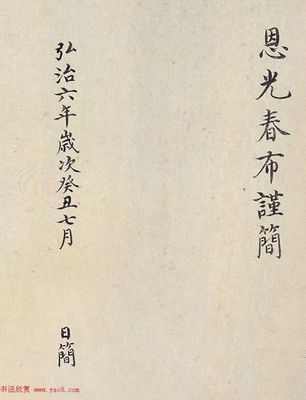 恩光春布謹簡
弘治六年歲次癸丑七月
日簡
书法欣赏 www.yac8.com